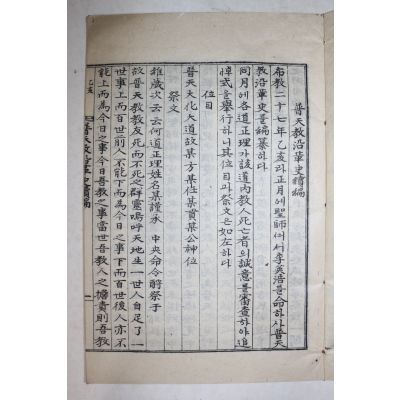 普天教沿革史續編
布教二十七年乙亥라正月에聖師께서李英浩를命하사普天
教沿革史를編纂하다
同月에各道正理가該道內教人死亡者의誠意를審查하야追
悼式을擧行하니其位目과祭文은如左하다
位目
普天大化大道故某方某任某貫某公神位
祭文
維歲次云云何道正理姓名某謹承 中央命令將祭于
故普天教教友死而不死之群靈嗚呼天地生一世人自足了一
世事上而百世前人不能下而為今日之事下而百世後人亦不
能上而為今日之事今日吾教之事當世吾教人之擔責則吾教
普天教沿革史續編 一